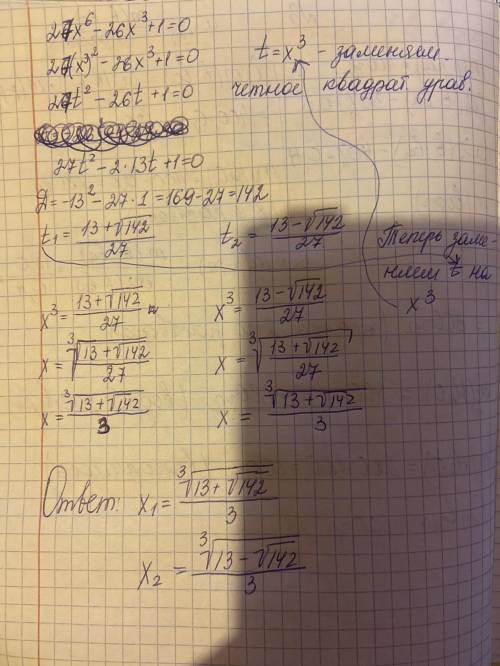 27x⁶ - 26x³ + 1 = 0
27(x³)² - 26x³ + 1 = 0
27t² - 26t + 1 = 0
t = x³ - заменяем.
четное квадрат урав.
27t² - 2·13t + 1 = 0
D = -13² - 27·1 = 169 - 27 = 142
t₁ = (13+√142)/27   t₂ = (13-√142)/27
Теперь заме-
няем t на
x³
x³ = (13+√142)/27   x³ = (13-√142)/27
x = ∛((13+√142)/27)   x = ∛((13+√142)/27)
x = ∛(13+√142)/3   x = ∛(13+√142)/3
Ответ: x₁ = ∛(13+√142)/3
x₂ = ∛(13-√142)/3